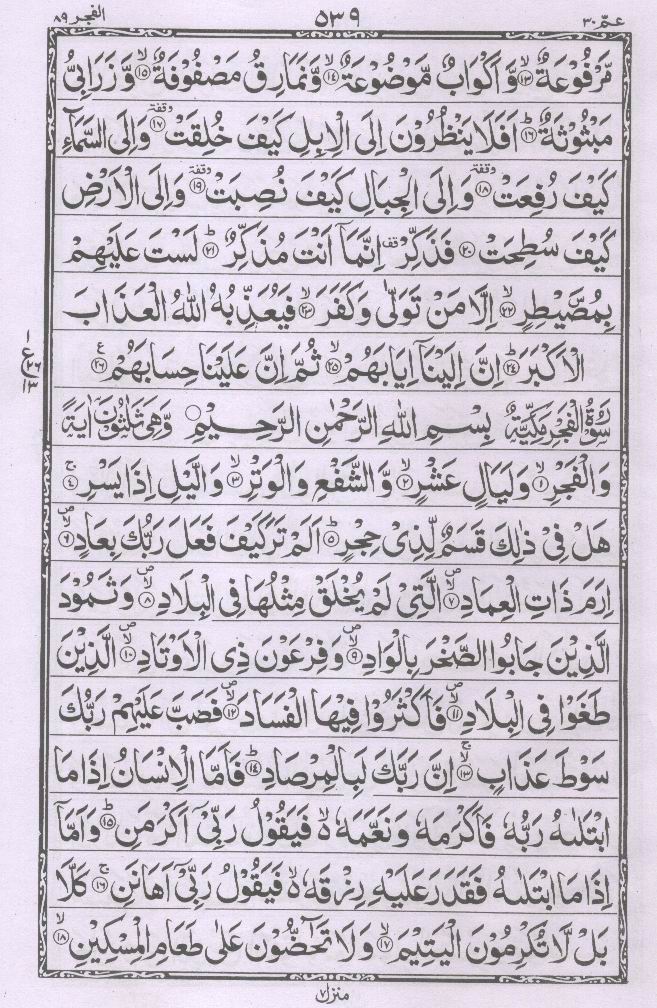 عمّ ٣٠ ٥٣٩ الفجر ٨٩
مَّرْفُوْعَةٌ ۙ‏﴿۱۳﴾ وَّ اَكْوَابٌ مَّوْضُوْعَةٌ ۙ‏﴿۱۴﴾ وَّنَمَارِقُ مَصْفُوْفَةٌ ۙ‏﴿۱۵﴾ وَّزَرَابِىُّ
مَبْثُوْثَةٌ ؕ‏﴿۱۶﴾ اَفَلَا يَنْظُرُوْنَ اِلَى الْاِبِلِ كَيْفَ خُلِقَتْ وقفة‏﴿۱۷﴾ وَاِلَى السَّمَآءِ
كَيْفَ رُفِعَتْ وقفة‏﴿۱۸﴾ وَاِلَى الْجِبَالِ كَيْفَ نُصِبَتْ وقفة‏﴿۱۹﴾ وَاِلَى الْاَرْضِ
كَيْفَ سُطِحَتْ‏﴿۲۰﴾ فَذَكِّرْ قف اِنَّمَاۤ اَنْتَ مُذَكِّرٌ ؕ‏﴿۲۱﴾ لَسْتَ عَلَيْهِمْ
بِمُصَۜيْطِرٍ ۙ‏﴿۲۲﴾ اِلَّا مَنْ تَوَلّٰى وَكَفَرَ ۙ‏﴿۲۳﴾ فَيُعَذِّبُهُ اللّٰهُ الْعَذَابَ
الْاَكْبَرَ ؕ‏﴿۲۴﴾ اِنَّ اِلَيْنَاۤ اِيَابَهُمْ ۙ‏﴿۲۵﴾ ثُمَّ اِنَّ عَلَيْنَا حِسَابَهُمْ ع‏﴿۲۶﴾
١ ع ٢٦ ١٣
سُوْرَةُ الْفَجْرِ مَكِّيَّةٌ بِسْمِ اللّٰهِ الرَّحْمٰنِ الرَّحِيْمِ وَّهِىَ ثَلٰثُوْنَ اٰيَةً
وَالْفَجْرِ ۙ‏﴿۱﴾ وَلَيَالٍ عَشْرٍ ۙ‏﴿۲﴾ وَّالشَّفْعِ وَالْوَتْرِ ۙ‏﴿۳﴾ وَالَّيْلِ اِذَا يَسْرِ ۚ‏﴿۴﴾
هَلْ فِىْ ذٰلِكَ قَسَمٌ لِّذِىْ حِجْرٍ ؕ‏﴿۵﴾ اَلَمْ تَرَ كَيْفَ فَعَلَ رَبُّكَ بِعَادٍ ۙ‏﴿۶﴾
اِرَمَ ذَاتِ الْعِمَادِ ۙ‏﴿۷﴾ الَّتِىْ لَمْ يُخْلَقْ مِثْلُهَا فِى الْبِلَادِ ۙ‏﴿۸﴾ وَثَمُوْدَ
الَّذِيْنَ جَابُوا الصَّخْرَ بِالْوَادِ ۙ‏﴿۹﴾ وَفِرْعَوْنَ ذِى الْاَوْتَادِ ۙ‏﴿۱۰﴾ الَّذِيْنَ
طَغَوْا فِى الْبِلَادِ ۙ‏﴿۱۱﴾ فَاَكْثَرُوْا فِيْهَا الْفَسَادَ ۙ‏﴿۱۲﴾ فَصَبَّ عَلَيْهِمْ رَبُّكَ
سَوْطَ عَذَابٍ ۚ‏﴿۱۳﴾ اِنَّ رَبَّكَ لَبِالْمِرْصَادِ ؕ‏﴿۱۴﴾ فَاَمَّا الْاِنْسَانُ اِذَا مَا
ابْتَلٰىهُ رَبُّهٗ فَاَكْرَمَهٗ وَنَعَّمَهٗ ۙ فَيَقُوْلُ رَبِّىْۤ اَكْرَمَنِ ؕ‏﴿۱۵﴾ وَاَمَّاۤ
اِذَا مَا ابْتَلٰىهُ فَقَدَرَ عَلَيْهِ رِزْقَهٗ ۙ فَيَقُوْلُ رَبِّىْۤ اَهَانَنِ ۚ‏﴿۱۶﴾ كَلَّا
بَلْ لَّا تُكْرِمُوْنَ الْيَتِيْمَ ۙ‏﴿۱۷﴾ وَلَا تَحٰٓضُّوْنَ عَلٰى طَعَامِ الْمِسْكِيْنِ ۙ‏﴿۱۸﴾
منزل ٧